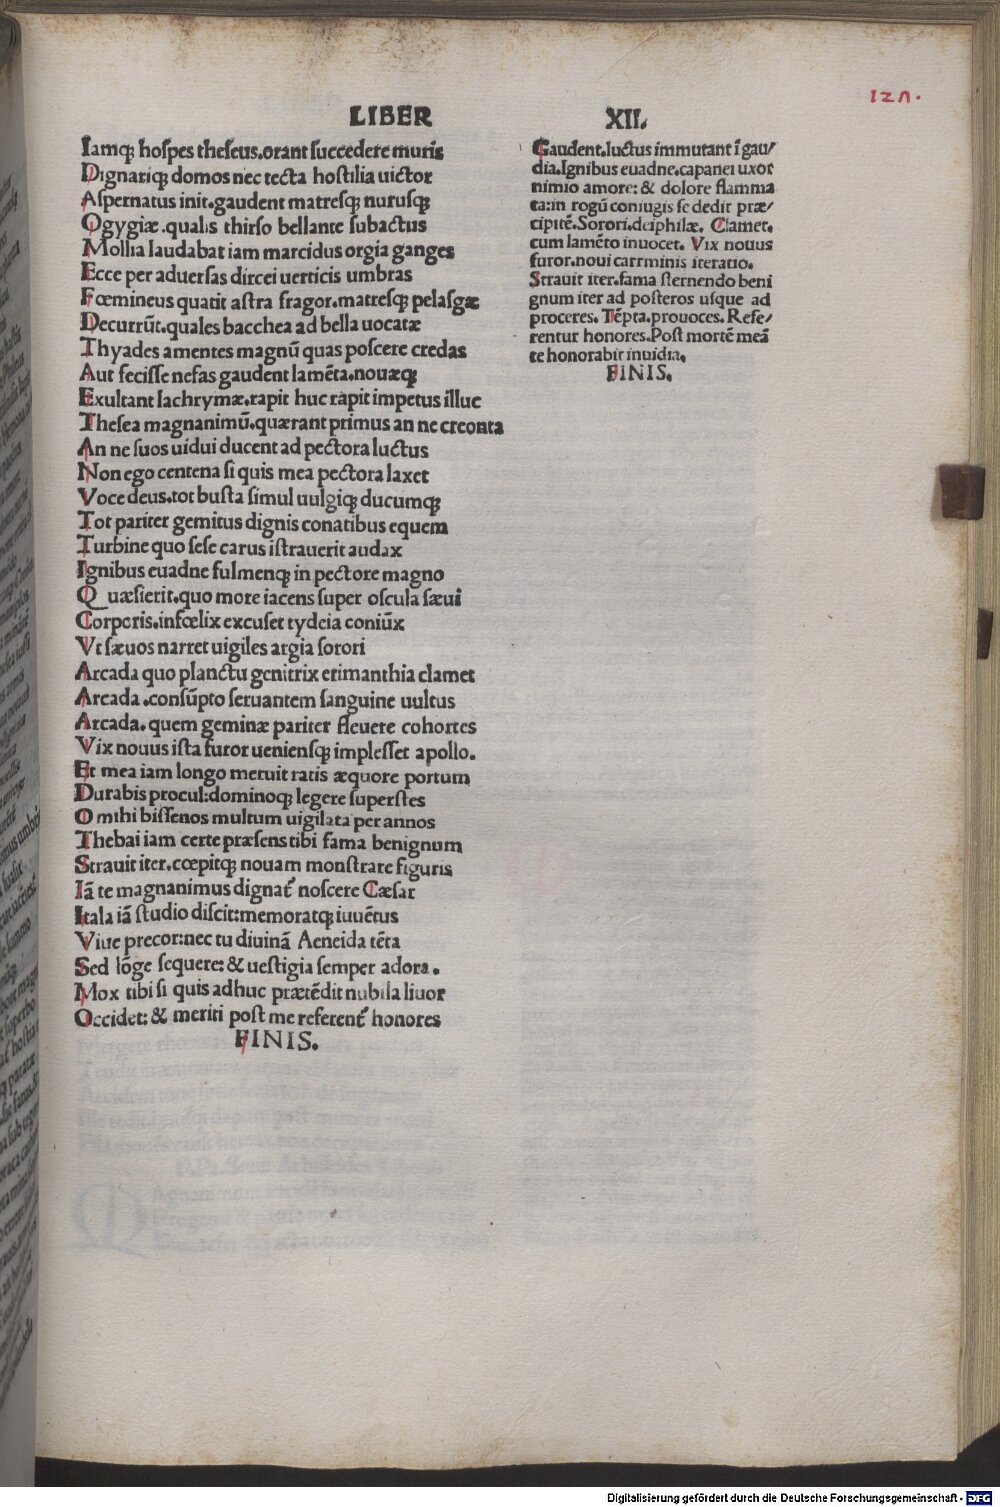 LIBER XII.
Iamq; hoſpes theſeus.orant ſuccedere muris
Dignariq; domos nec tecta hoſtilia uictor
Aſpernatus init.gaudent matreſq; nuruſq;
Ogygiæ.qualis thirſo bellante ſubactus
Mollia laudabat iam marcidus orgia ganges
Ecce per aduerſas dircei uerticis umbras
Fœmineus quatit aſtra fragor.matreſq; pelaſgæ
Decurrūt.quales bacchea ad bella uocatæ
Thyades amentes magnū quas poſcere credas
Aut feciſſe nefas gaudent lamēta.nouæq;
Exultant lachrymæ.rapit huc rapit impetus illuc
Theſea magnanimū.quærant primus an ne creonta
An ne ſuos uidui ducent ad pectora luctus
Non ego centena ſi quis mea pectora laxet
Voce deus.tot buſta ſimul uulgiq; ducumq;
Tot pariter gemitus dignis conatibus equem
Turbine quo ſeſe carus iſtrauerit audax
Ignibus euadne fulmenq; in pectore magno
Quæſierit.quo more iacens ſuper oſcula ſæui
Corporis.infœlix excuſet tydeia coniūx
Vt ſæuos narret uigiles argia ſorori
Arcada quo planctu genitrix erimanthia clamet
Arcada.conſūpto ſeruantem ſanguine uultus
Arcada.quem geminæ pariter fleuere cohortes
Vix nouus iſta furor uenienſq; impleſſet apollo.
Et mea iam longo metuit ratis æquore portum
Durabis procul:dominoq; legere ſuperſtes
O mihi biſſenos multum uigilata per annos
Thebai iam certe præſens tibi fama benignum
Strauit iter.cœpitq; nouam monſtrare figuris
Iā te magnanimus dignat̃ noſcere Cæſar
Itala iā ſtudio diſcit:memoratq; iuuētus
Viue precor:nec tu diuinā Aeneida tēta
Sed lōge ſequere:& ueſtigia ſemper adora.
Mox tibi ſi quis adhuc prætēdit nubila liuor
Occidet:& meriti poſt me referent̃ honores
FINIS.
Gaudent.luctus immutant ī gau/
dia.Ignibus euadne.capanei uxor
nimio amore:& dolore flamma
ta:in rogū coniugis ſe dedit præ/
cipitē.Sorori.deiphilæ. Clamet.
cum lamēto inuocet. Vix nouus
furor.noui carrminis iteratio.
Strauit iter.fama ſternendo beni
gnum iter ad poſteros uſque ad
proceres. Tēpta.prouoces. Refe/
rentur honores.Poſt mortē meā
te honorabit inuidia.
FINIS.
Digitalisierung gefördert durch die Deutsche Forschungsgemeinschaft - DFG